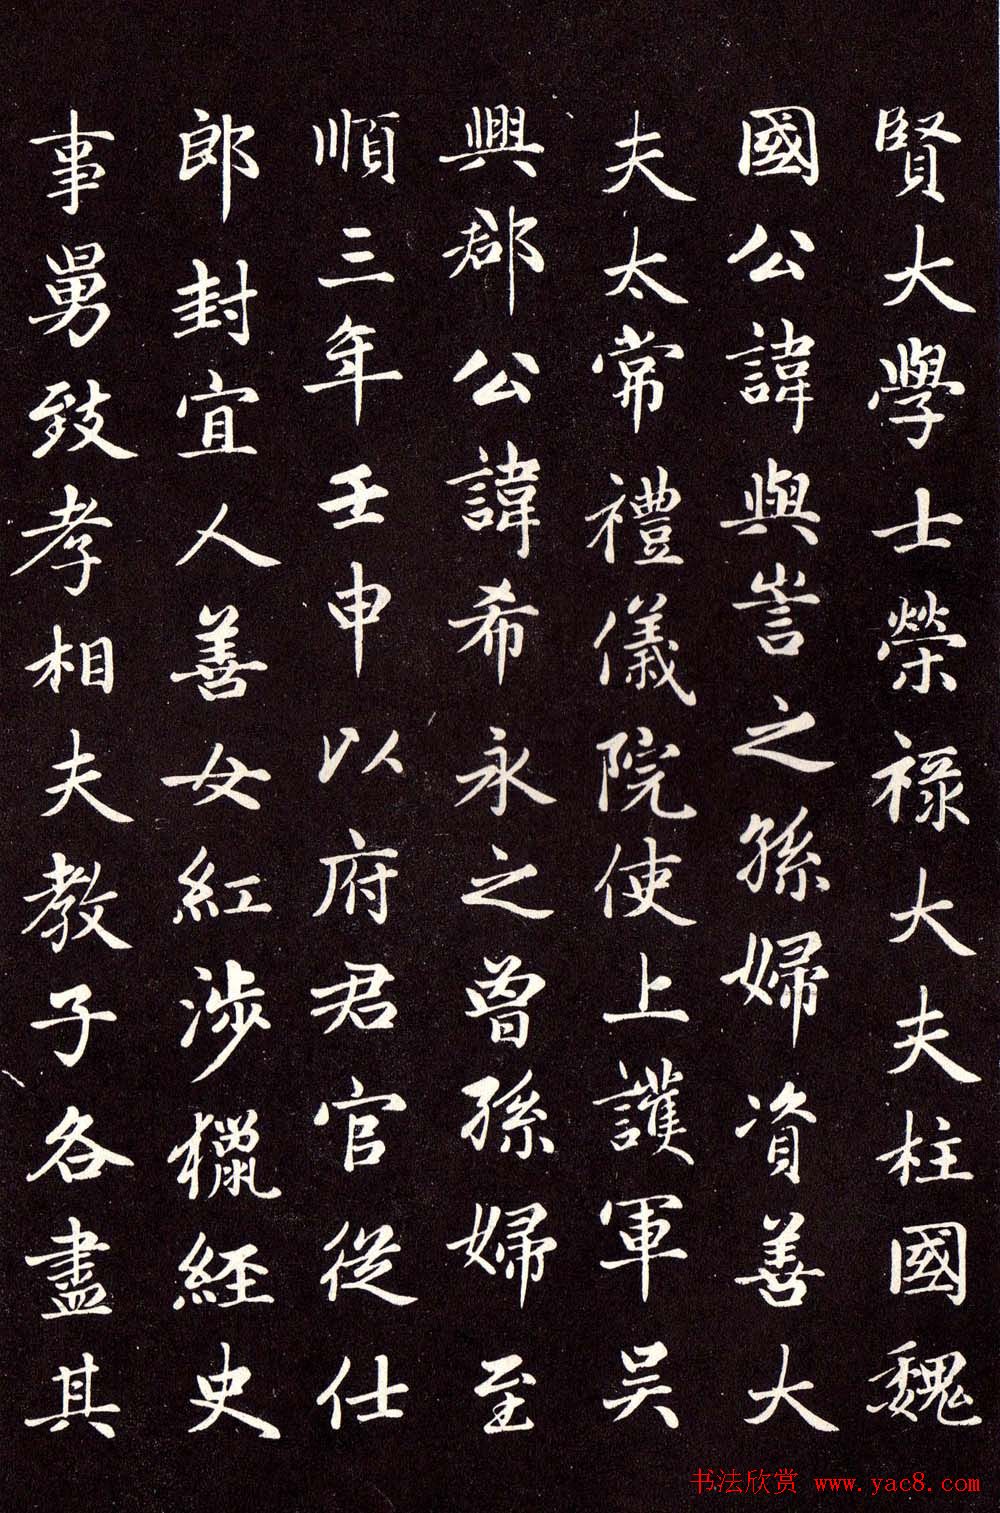 賢大學士榮禄大夫柱國魏
國公諱與訔之孫婦資善大
夫太常禮儀院使上護軍吴
興郡公諱希永之曾孫婦至
順三年壬申以府君官從仕
郎封宜人善女紅涉獵經史
事舅致孝相夫教子各盡其
书法欣赏 www.yac8.com